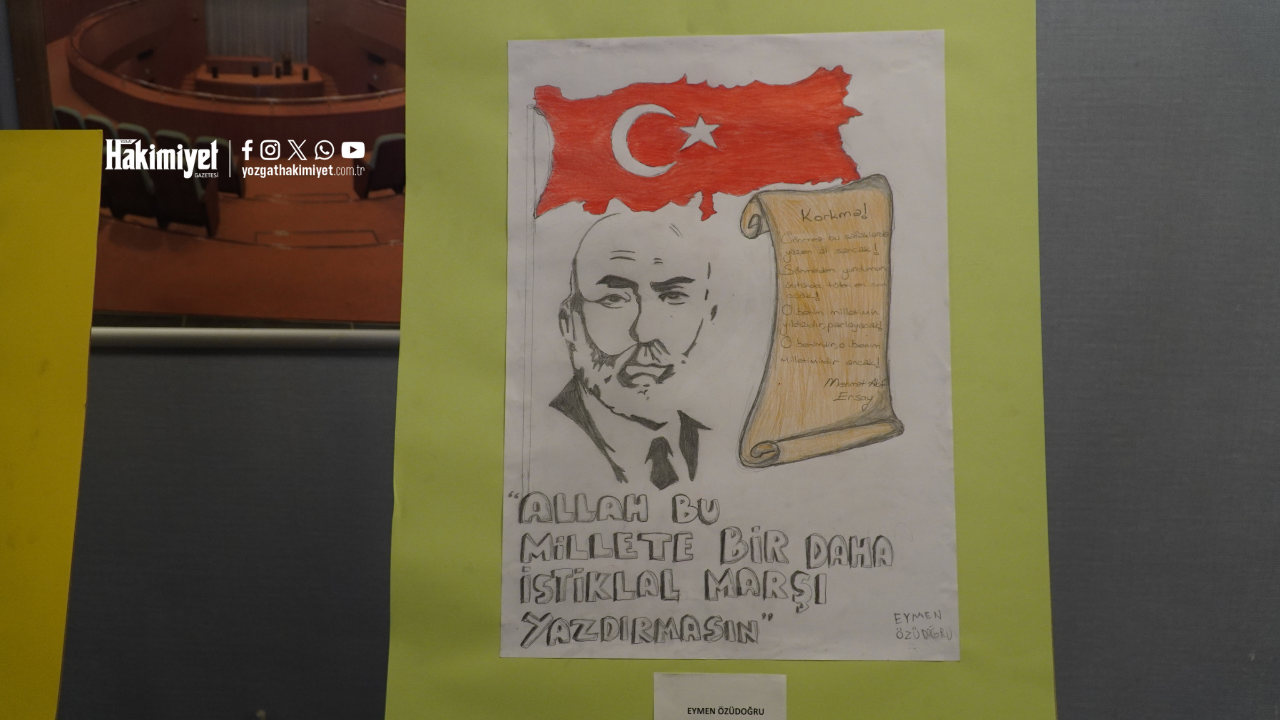 Hakimiyet
GAZETESİ
yozgathakimiyet.com.tr
Korkma!
Sönmez bu şafaklarda
yüzen al sancak!
Sönmeden yurdumun
üstünde tüten en son
ocak!
O benim milletimin
yıldızıdır, parlayacak!
O benimdir, o benim
milletimindir ancak!
Mehmet Akif
Ersoy
"ALLAH BU
MİLLETE BİR DAHA
İSTİKLAL MARŞI
YAZDIRMASIN"
EYMEN
ÖZÜDOĞRU
EYMEN ÖZÜDOĞRU